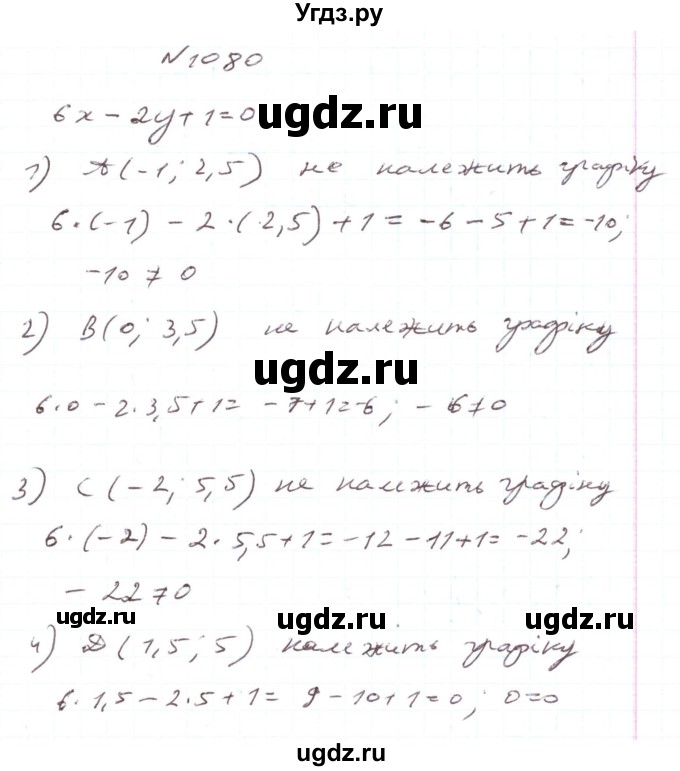 Угдз.ру
N1080
6x - 2y + 1 = 0
ugdz.ru
1) A(-1; 2,5) не належить графіку
6·(-1) - 2·(2,5) + 1 = -6 - 5 + 1 = -10;
-10 ≠ 0
2) B(0; 3,5) не належить графіку
ugdz.ru
6·0 - 2·3,5 + 1 = -7 + 1 = -6; -6 ≠ 0
3) C(-2; 5,5) не належить графіку
6·(-2) - 2·5,5 + 1 = -12 - 11 + 1 = -22;
-22 ≠ 0
ugdz.ru ugdz.ru
4) D(1,5; 5) належить графіку
6·1,5 - 2·5 + 1 = 9 - 10 + 1 = 0; 0 = 0
ugdz.ru